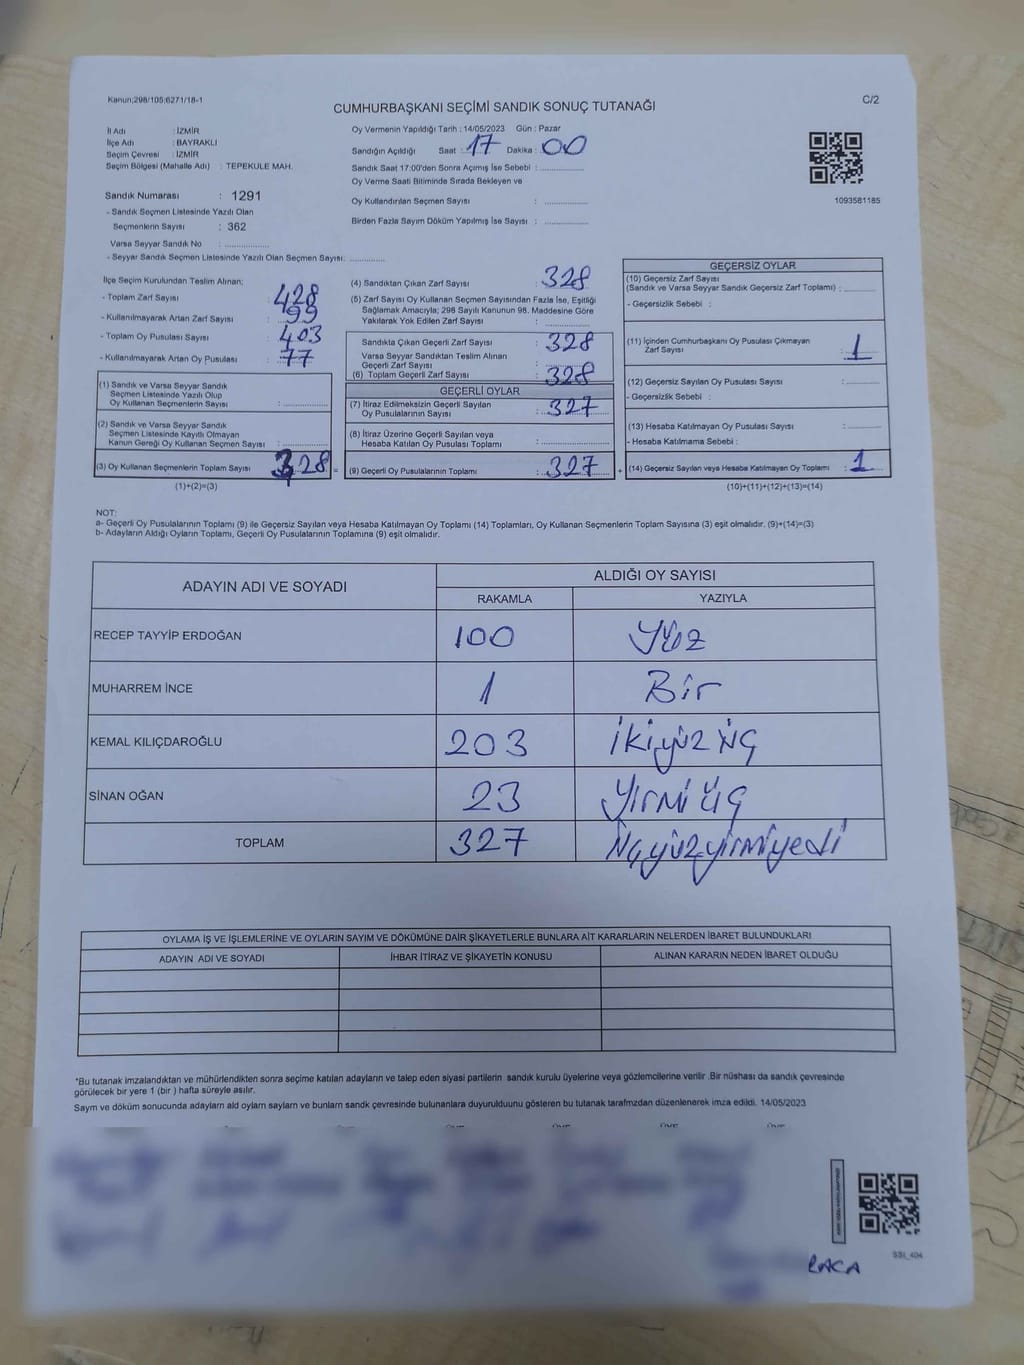 Kanun;298/105;6271/18-1
CUMHURBAŞKANI SEÇİMİ SANDIK SONUÇ TUTANAĞI
C/2
İl Adı : İZMİR
İlçe Adı : BAYRAKLI
Seçim Çevresi : İZMİR
Seçim Bölgesi (Mahalle Adı) : TEPEKULE MAH.
Sandık Numarası : 1291
- Sandık Seçmen Listesinde Yazılı Olan
Seçmenlerin Sayısı : 362
Varsa Seyyar Sandık No : ..............
- Seyyar Sandık Seçmen Listesinde Yazılı Olan Seçmen Sayısı: ............
Oy Vermenin Yapıldığı Tarih : 14/05/2023 Gün : Pazar
Sandığın Açıldığı Saat : 17 Dakika : 00
Sandık Saat 17:00'den Sonra Açımış İse Sebebi : ..............
Oy Verme Saati Bitiminde Sırada Bekleyen ve
Oy Kullandırılan Seçmen Sayısı : ..............
Birden Fazla Sayım Döküm Yapılmış İse Sayısı : ..............
1093581185
İlçe Seçim Kurulundan Teslim Alınan;
- Toplam Zarf Sayısı : 428
- Kullanılmayarak Artan Zarf Sayısı : 99
- Toplam Oy Pusulası Sayısı : 403
- Kullanılmayarak Artan Oy Pusulası : 77
(1) Sandık ve Varsa Seyyar Sandık
Seçmen Listesinde Yazılı Olup
Oy Kullanan Seçmenlerin Sayısı : ..............
(2) Sandık ve Varsa Seyyar Sandık
Seçmen Listesinde Kayıtlı Olmayan
Kanun Gereği Oy Kullanan Seçmen Sayısı : ..............
(3) Oy Kullanan Seçmenlerin Toplam Sayısı : 328 =
(1)+(2)=(3)
(4) Sandıktan Çıkan Zarf Sayısı : 328
(5) Zarf Sayısı Oy Kullanan Seçmen Sayısından Fazla İse, Eşitliği
Sağlamak Amacıyla; 298 Sayılı Kanunun 98. Maddesine Göre
Yakılarak Yok Edilen Zarf Sayısı : ..............
Sandıkta Çıkan Geçerli Zarf Sayısı : 328
Varsa Seyyar Sandıktan Teslim Alınan
Geçerli Zarf Sayısı :
(6) Toplam Geçerli Zarf Sayısı : 328
GEÇERLİ OYLAR
(7) İtiraz Edilmeksizin Geçerli Sayılan
Oy Pusulalarının Sayısı : 327
(8) İtiraz Üzerine Geçerli Sayılan veya
Hesaba Katılan Oy Pusulası Toplamı : ..............
(9) Geçerli Oy Pusulalarının Toplamı : 327 +
GEÇERSİZ OYLAR
(10) Geçersiz Zarf Sayısı
(Sandık ve Varsa Seyyar Sandık Geçersiz Zarf Toplamı) : ..........
- Geçersizlik Sebebi :
(11) İçinden Cumhurbaşkanı Oy Pusulası Çıkmayan
Zarf Sayısı : 1
(12) Geçersiz Sayılan Oy Pusulası Sayısı : ..........
- Geçersizlik Sebebi :
(13) Hesaba Katılmayan Oy Pusulası Sayısı : ..........
- Hesaba Katılmama Sebebi :
(14) Geçersiz Sayılan veya Hesaba Katılmayan Oy Toplamı : 1
(10)+(11)+(12)+(13)=(14)
NOT:
a- Geçerli Oy Pusulalarının Toplamı (9) ile Geçersiz Sayılan veya Hesaba Katılmayan Oy Toplamı (14) Toplamları, Oy Kullanan Seçmenlerin Toplam Sayısına (3) eşit olmalıdır. (9)+(14)=(3)
b- Adayların Aldığı Oyların Toplamı, Geçerli Oy Pusulalarının Toplamına (9) eşit olmalıdır.
ADAYIN ADI VE SOYADI ALDIĞI OY SAYISI
RAKAMLA YAZIYLA
RECEP TAYYİP ERDOĞAN 100 Yüz
MUHARREM İNCE 1 Bir
KEMAL KILIÇDAROĞLU 203 İkiyüz üç
SİNAN OĞAN 23 Yirmi üç
TOPLAM 327 Üçyüzyirmiyedi
OYLAMA İŞ VE İŞLEMLERİNE VE OYLARIN SAYIM VE DÖKÜMÜNE DAİR ŞİKAYETLERLE BUNLARA AİT KARARLARIN NELERDEN İBARET BULUNDUKLARI
ADAYIN ADI VE SOYADI İHBAR İTİRAZ VE ŞİKAYETİN KONUSU ALINAN KARARIN NEDEN İBARET OLDUĞU
*Bu tutanak imzalandıktan ve mühürlendikten sonra seçime katılan adayların ve talep eden siyasi partilerin sandık kurulu üyelerine veya gözlemcilerine verilir .Bir nüshası da sandık çevresinde
görülecek bir yere 1 (bir ) hafta süreyle asılır.
Sayım ve döküm sonucunda adayların ald oyların sayların ve bunların sandk çevresinde bulunanlara duyurulduunu gösteren bu tutanak tarafmzdan düzenlenerek imza edildi. 14/05/2023
SSI_404